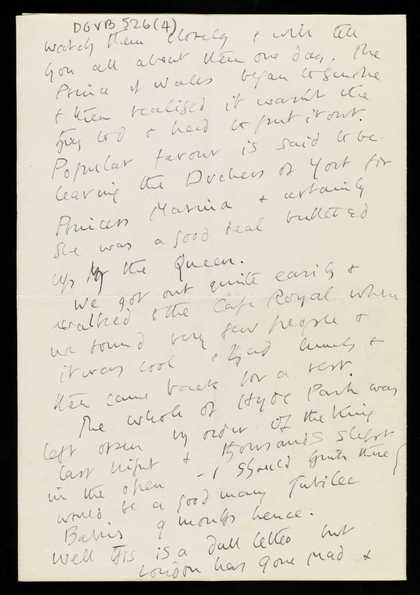 DGVB 526(4)
watch them closely & will tell
you all about them one day. The
Prince of Wales began to smoke
& then realised it wasn't the
thing to do & had to put it out.
Popular favour is said to be
leaving the Duchess of York for
Princess Marina & certainly
she was a good deal buttered
up by the Queen.
We got out quite easily &
walked to the Café Royal when
we found very few people &
it was cool & had lunch &
then came back for a rest.
The whole of Hyde Park was
left open by order of the King
last night & thousands slept
in the open - I should think there
would be a good many Jubilee
Babies 9 months hence.
Well this is a dull letter but
London has gone mad &